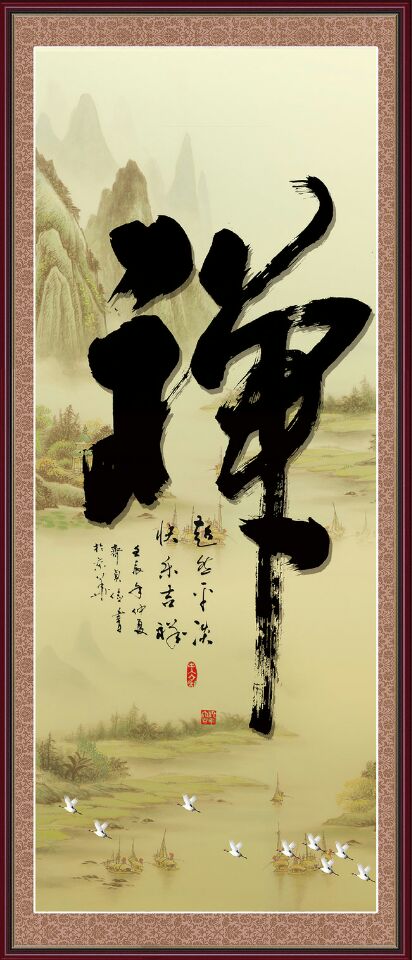 禅
超然平淡
快乐吉祥
壬辰年仲夏
於京华